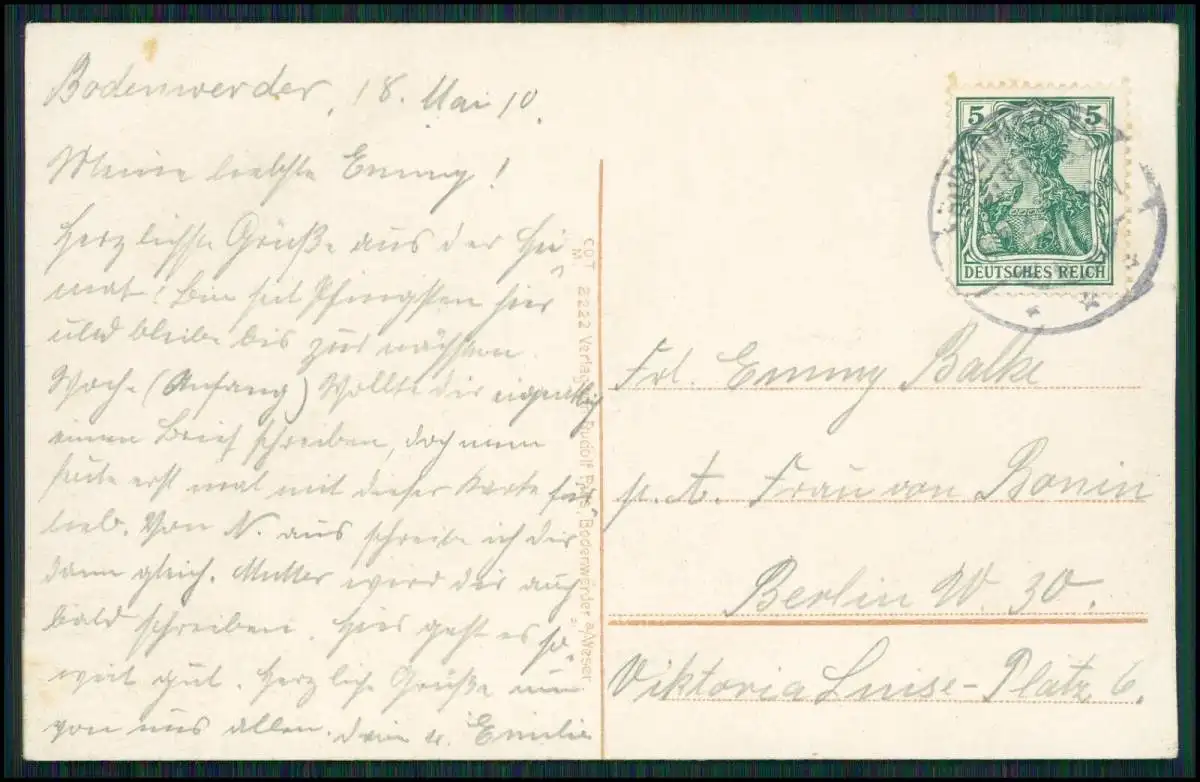 Bodenwerder, 18. Mai 10.
Meine liebste Emmy!
Herzlichste Grüße aus der Hei
mat! Bin seit Pfingsten hier
und bleibe bis zur nächsten
Woche (Anfang) Wollte dir eigentlich
einen Brief schreiben, doch nun
erst mal mit dieser Karte für
lieb. Von N. aus schreibe ich dir
dann gleich. Mutter wird dir auch
bald schreiben. Hier geht es so
weit gut. Herzliche Grüße nun
von uns allen. Emilie
COT 2222 Verlag Rudolf Bodenwerder a/Weser
5 5
DEUTSCHES REICH
Frl. Emmy Balke
p. A. Frau von Bonin
Berlin W. 30.
Viktoria Luise-Platz 6.